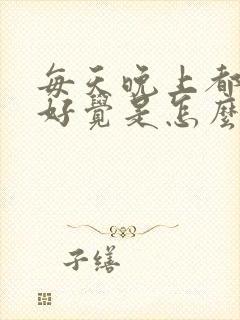 每天晚上都
好覺是怎麼
子缮